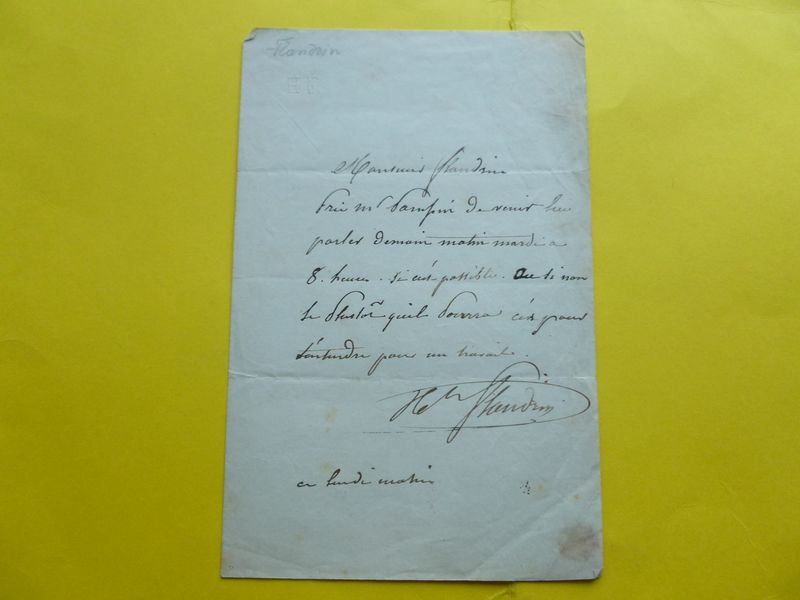 Flandrin
Monsieur Flandrin
Prie mr de venir lui
parler demain matin mardi a
8. heures. si c'est possible. Ou si non
le plustôt qu'il pourra c'est pour
s'entendre pour un travail.
Hte Flandrin
ce lundi matin